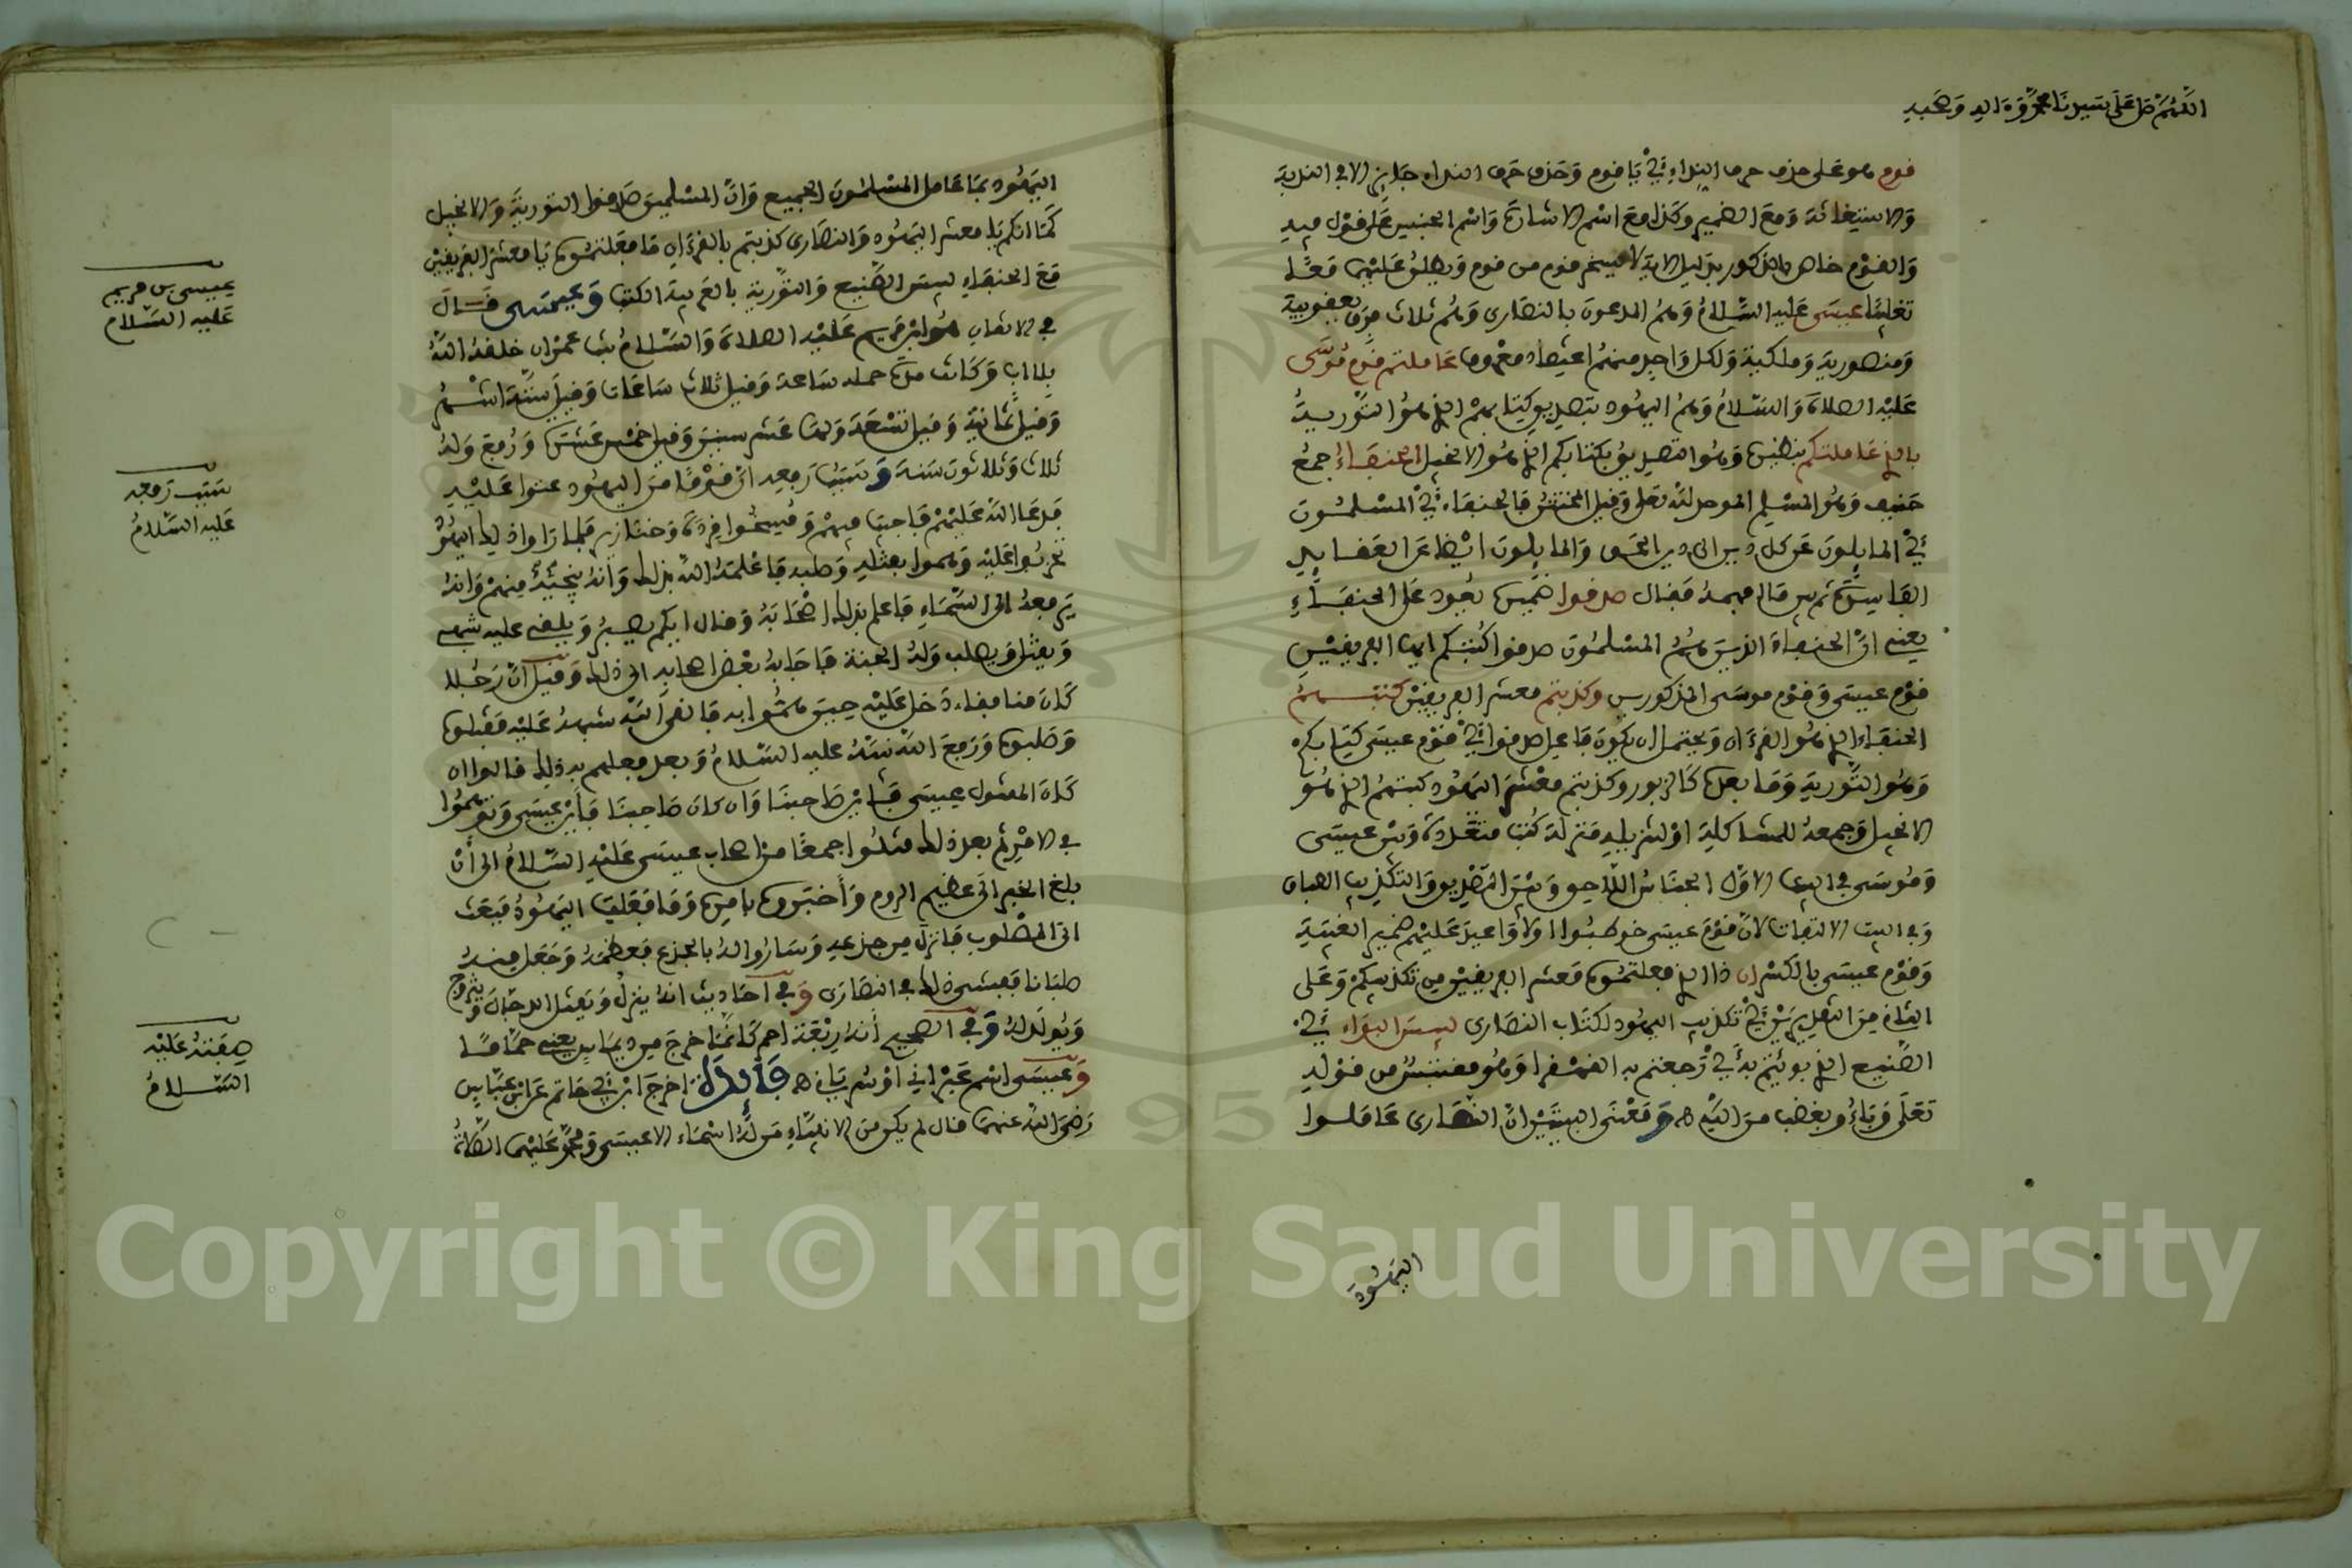 اللهم صل على سيدنا محمد وءاله وصحبه
قوم هو على حذف حرف النداء أي يا قوم وحذف حرف النداء جايز الا في الندبة
والاستغاثة ومع الضمير وكذا مع اسم الاشارة واسم الجنس على قول فيه
والقوم خاص بالذكور بدليل الاية لا يسخر قوم من قوم ويطلق عليهما معا
تغليبا عيسى عليه السلام وهم المدعون بالنصارى وهم ثلاث فرق يعقوبية
ومنصورية وملكية ولكل واحد منهم اعتقاد معروف عاملتم قوم موسى
عليه الصلاة والسلام وهم اليهود بتصديق كتابهم الذي هو التورية
بالذي عاملتكم بنظيره وهو التصديق بكتابكم الذي هو الانجيل الحنفاء جمع
حنيف وهو المسلم الموحد لله تعلى وقيل المختتن فالحنفاء أي المسلمون
أي المايلون عن كل دين الى دين الحق والمايلون ايضا عن العقايد
الفاسدة ثم بين ما ابهمه فقال صدقوا ضميره يعود على الحنفاء
يعني ان الحنفاء الذين هم المسلمون صدقوا كتبكم ايها الفريقين
قوم عيسى وقوم موسى المذكورين وكذبتم معشر الفريقين كتبهم
الحنفاء الذي هو القرءان ويحتمل ان يكون فاعل صدقوا أي قوم عيسى كتابكم
وهو التورية وما بعده كالزبور وكذبتم معشر اليهود كتبهم الذي هو
الانجيل وجمعه للمشاكلة او لتنزيله منزلة كتب متعددة وبين عيسى
وموسى في البيت الاول الجناس اللاحق وبين التصديق والتكذيب الطباق
وفي البيت الالتفات لان قوم عيسى خوطبوا اولا واعيد عليهم ضمير الغيبة
وقوم عيسى بالكسر ان ذا الذي فعلتموه معشر الفريقين من تكذيبكم وعلى
الثاني من التقديرين أي تكذيب اليهود لكتاب النصارى لبيس البواء أي
الصنيع الذي بوئتم به أي رجعتم به القهقرا وهو مقتبس من قوله
تعلى وباءو بغضب من الله ه ومعنى البيتين ان النصارى عاملوا
اليهود
اليهود بما عامل المسلمون الجميع وان المسلمين صدقوا التورية والانجيل
كما انكم يا معشر اليهود والنصارى كذبتم بالقرءان فما فعلتموه يا معشر الفريقين
مع الحنفاء لبيس الصنيع والتورية بالعربية الكتب وعيسى قال
في الاتقان هو ابن مريم عليه الصلاة والسلام بنت عمران خلقه الله
بلا اب وكانت مدة حمله ساعة وقيل ثلاث ساعات وقيل ستة اشهر
وقيل ثمانية وقيل تسعة ولها عشر سنين وقيل خمس عشرة ورفع وله
ثلاث وثلاثون سنة وسبب رفعه ان قوما من اليهود عتوا عليه
فدعا الله عليهم فاجيب فيهم ومسخوا قردة وخنازير فلما راوا ذلك اليهود
تحزبوا عليه وهموا بقتله وطلبه فاعلمه الله بذلك وانه ينجيه منهم وانه
يرفعه الى السماء فاعلم بذلك اصحابه وقال ايكم يصبر ويلقى عليه شبهي
ويقتل ويصلب وله الجنة فاجابه بعض اصحابه الى ذلك وقيل ان رجلا
كان منافقا دخل عليه حين هموا به فالقى الله شبهه عليه فقتلوه
وصلبوه ورفع الله نبيه عليه السلام وبعد فعلهم به ذلك قالوا ان
كان المقتول عيسى فاين صاحبنا وان كان صاحبنا فاين عيسى وتوهموا
في الامر ثم بعد ذلك قتلوا جمعا من اصحاب عيسى عليه السلام الى أن
بلغ الخبر الى عظيم الروم وأخبروه بامره وما فعلت اليهود فبعث
الى المصلوب فانزل من جذعه وساروا له بالجذع فعظمه وجعل منه
صلبانا ففشى ذلك في النصارى وفي احاديث انه ينزل ويقتل الدجال ويتزوج
ويولد له وفي الصحيح أنه ربعة احمر كانما خرج من ديماس يعني حماما
وعيسى اسم عبراني او سرياني ه فائدة اخرج ابن أبي حاتم عن ابن عباس
رضي الله عنهما قال لم يكن من الانبياء من له اسماء الا عيسى ومحمد عليهما الصلاة
عيسى بن مريم
عليه السلام
سبب رفعه
عليه السلام
صفته عليه
السلام
Copyright © King Saud University
1957